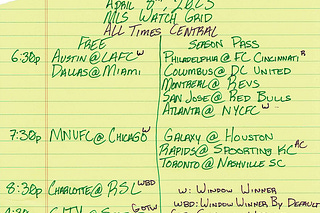 April 8th, 2023
MLS Watch Grid
All Times Central
Free Season Pass
6:30p Austin @ LAFC W Philadelphia @ FC Cincinnati R
Dallas @ Miami Columbus @ DC United
Montreal @ Revs
San Jose @ Red Bulls
Atlanta @ NYCFC W
7:30p MNUFC @ Chicago W Galaxy @ Houston
Rapids @ Sporting KC AC
Toronto @ Nashville SC
8:30p Charlotte @ RSL WBD W: Window Winner
WBD: Window Winner By Default
City @ GOTW